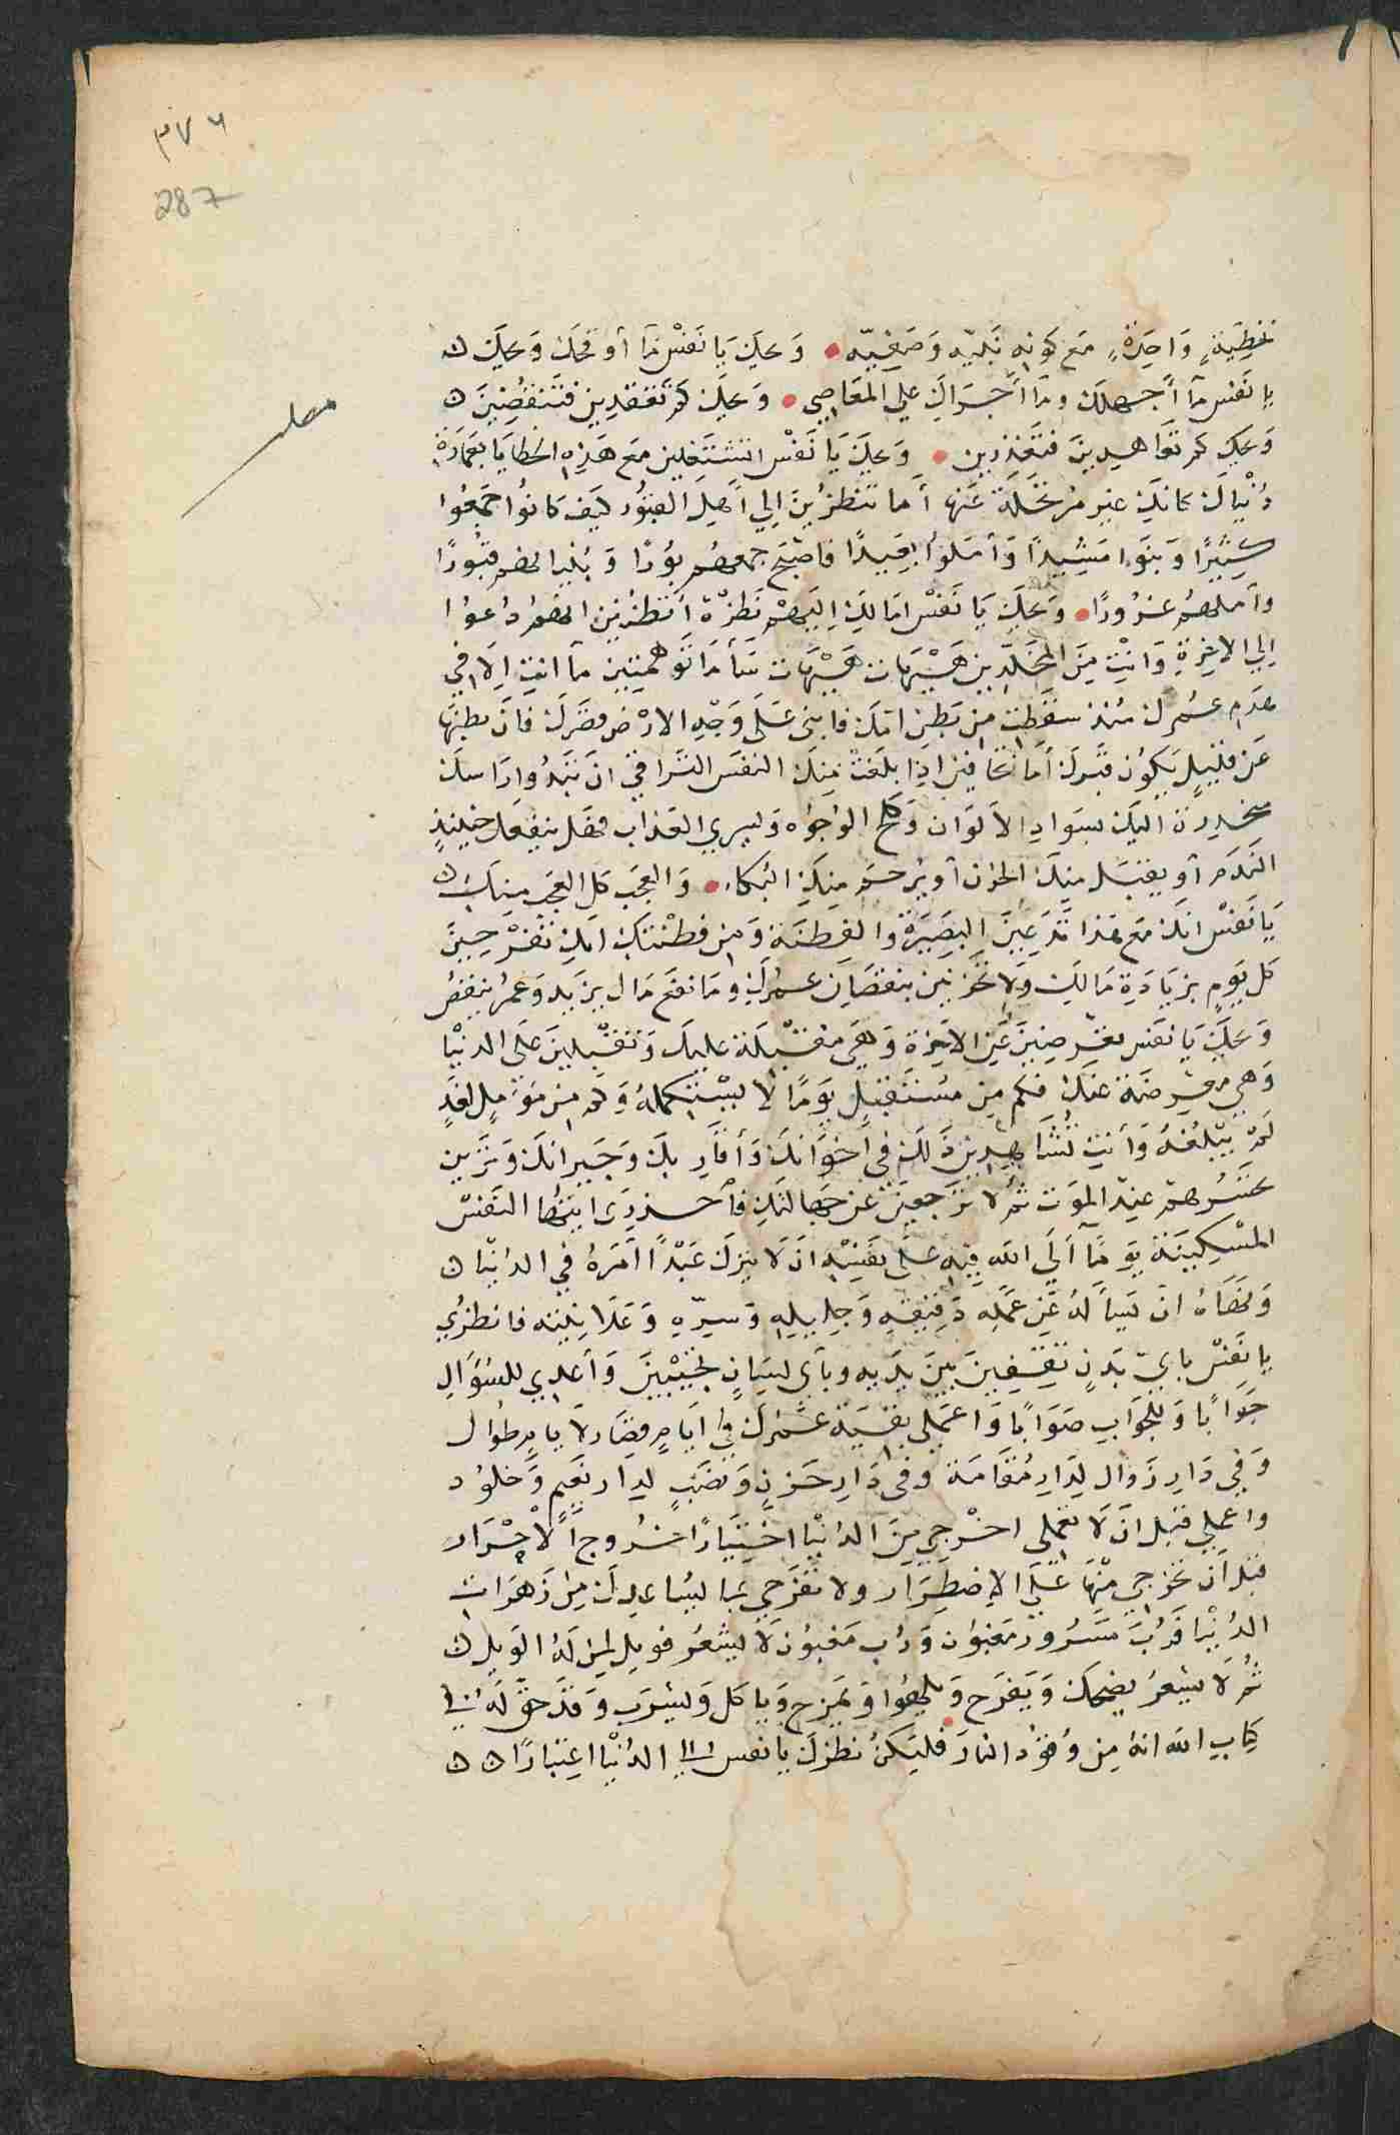 ٣٧٦
287
بخطيةٍ وَاحِدَةٍ مَع كَونِهِ نَبِيّه وَصَفِيّه • وَيحَكِ يَا نَفْس مَا أوقحَك وَيحَكِ
يا نَفْس مَا أجهلَك ومَا أَجرَاكِ علي المعَاصِي • وَيحَكِ كم تعقدِين فتَنقُضِينَ
وَيحَكِ كم تعَاهدِينَ فتَغدِرِين • وَيحَكِ يَا نَفْس اتشتَغلين مَع هَذِهِ الخطايَا بعَمَارَةِ
دُنْيَاكَ كانكِ غير مرتحَلَة عَنها أما تنظرُينَ إلي أهلِ القبُور كيَف كَانوُا جَمَعُوا
كثِيرًا وَبنَوا مَشِيدًا وَأمَلوُا بَعِيدًا فاصَبَح جمعهُم بوُرًا وَبُنيانهم قبُورًا
وأملهُم غرُورًا • وَيحَكِ يَا نَفْس امَا لكِ اليَهمْ نَظرَة أتظُنين انهُم دُعوُا
إلي الاخِرَةِ وَانتِ مِنَ المخَلّدِين هَيْهَات هَيْهَات سَأ مَا تتوَهمّين مَا انتِ إلا في
هدَمِ عمُركَ مُنذ سقَطِت مِن بَطنِ امّك فابنى عَلَى وَجْهِ الارْض قصَركَ فانَ بطنهَا
عَن قلِيلٍ يَكوُن قبَرك أمَا تخَافين اذِا بلَغت مِنكَ النفسَ التَراقي انَ تبَدُوا رُسل
ربك منحدِرة اليَك بسَوادِ الاَلوَان وَكلح الوُجوُه وبشرى بالعذاب فهَل ينفعك حِينيذٍ
الندَم أو يقبَل منِكَ الحزن أو يُرحَم منِكِ البُكاء • وَالعجَب كل العجَب منكِ
يَا نَفْس انكَ مَع هَذا تدَعِينَ البصَيرَة والفِطنَة وَمِن فطْنتكِ انكِ تفرَحِينَ
كل يوَمٍ بزيَادَةِ مَالكِ وَلا تحزنين بنقصَان عمُركِ ومَا نفَع مَال يزَيد وَعمُر ينقصُ
وَيحَكِ يَا نفَس تعرِضِينَ عَنِ الاخِرَة وَهيَ مقبْلَة عليك وَتقبلينَ عَلى الدنيْا
وَهي معرِضَة عنكَ فكم مِن مُستَقبِلٍ يوَمًا لا يسْتكملهُ وَكم مِن مُؤَمِلٍ لغَدٍ
لَمْ يبْلغهُ وَأنتِ تُشاهدِين ذَلكَ في اخوَانكَ وَأقارِبكَ وَجَيِرانكَ وَترَين
تحسَرُهم عندِ الموَت ثمُ لا ترَجعِينَ عن جهَالتكِ فاحذرِى ايتهُا النَفسْ
المسْكِينَة يوَمًا آلى اللَه فيِهِ علَى نفَسِه انَ لا يترَكَ عَبْدًا أمَرَهُ في الدُنيْا
وَنهَاهُ انَ يسَأَلهُ عَن عَملِه دَقيقِهِ وَجليلِه وَسِرّهِ وَعَلاَنيتِه فانظرُي
يا نفَسْ باىّ بَدَنٍ تقفِينَ بينَ يدَيه وباى لسِانٍ تجيبْينَ وَأعدِي للسُؤَالِ
جوَابًا وَللجوَابِ صَوَابًا وَاعمَلي بقيَة عمُركِ في ايَامٍ قصَار لاَيامٍ طوُال
وَفي دَارِ زَوال لدِارِ مُقَامَة وفى دَارِ حَزنٍ وَنصَبٍ لدِار نعَيم وَخلوُد
واعملي قبَل انَ لا تعَملى اخرْجي مِنَ الدُنيْا اخْتيَارًا خرُوج الاَحْرَار
قبَل انَ تخرَجي منِْهَا علَى الاِضطِرَار ولا تفَرحي بما يسُاعدِك مِنْ زَهرَات
الدُنيْا فَرُبَ مَسرُور مغبوُن وَرُب مَغبوُن لاَ يشعُر فويل لمِن لهُ الوَيل
ثمُ لا يشعرُ يضحكَ وَيَفرَح وَيلهوُا وَيمَرح وَيا كل وَيشرَب وَقدَ حقّ لهُ في
كِتابِ اللَه انهُ مِن وُقوُد النارَ فليَكنُ نظرَك يا نفس إلى الدُنيْا اعِتبارًا